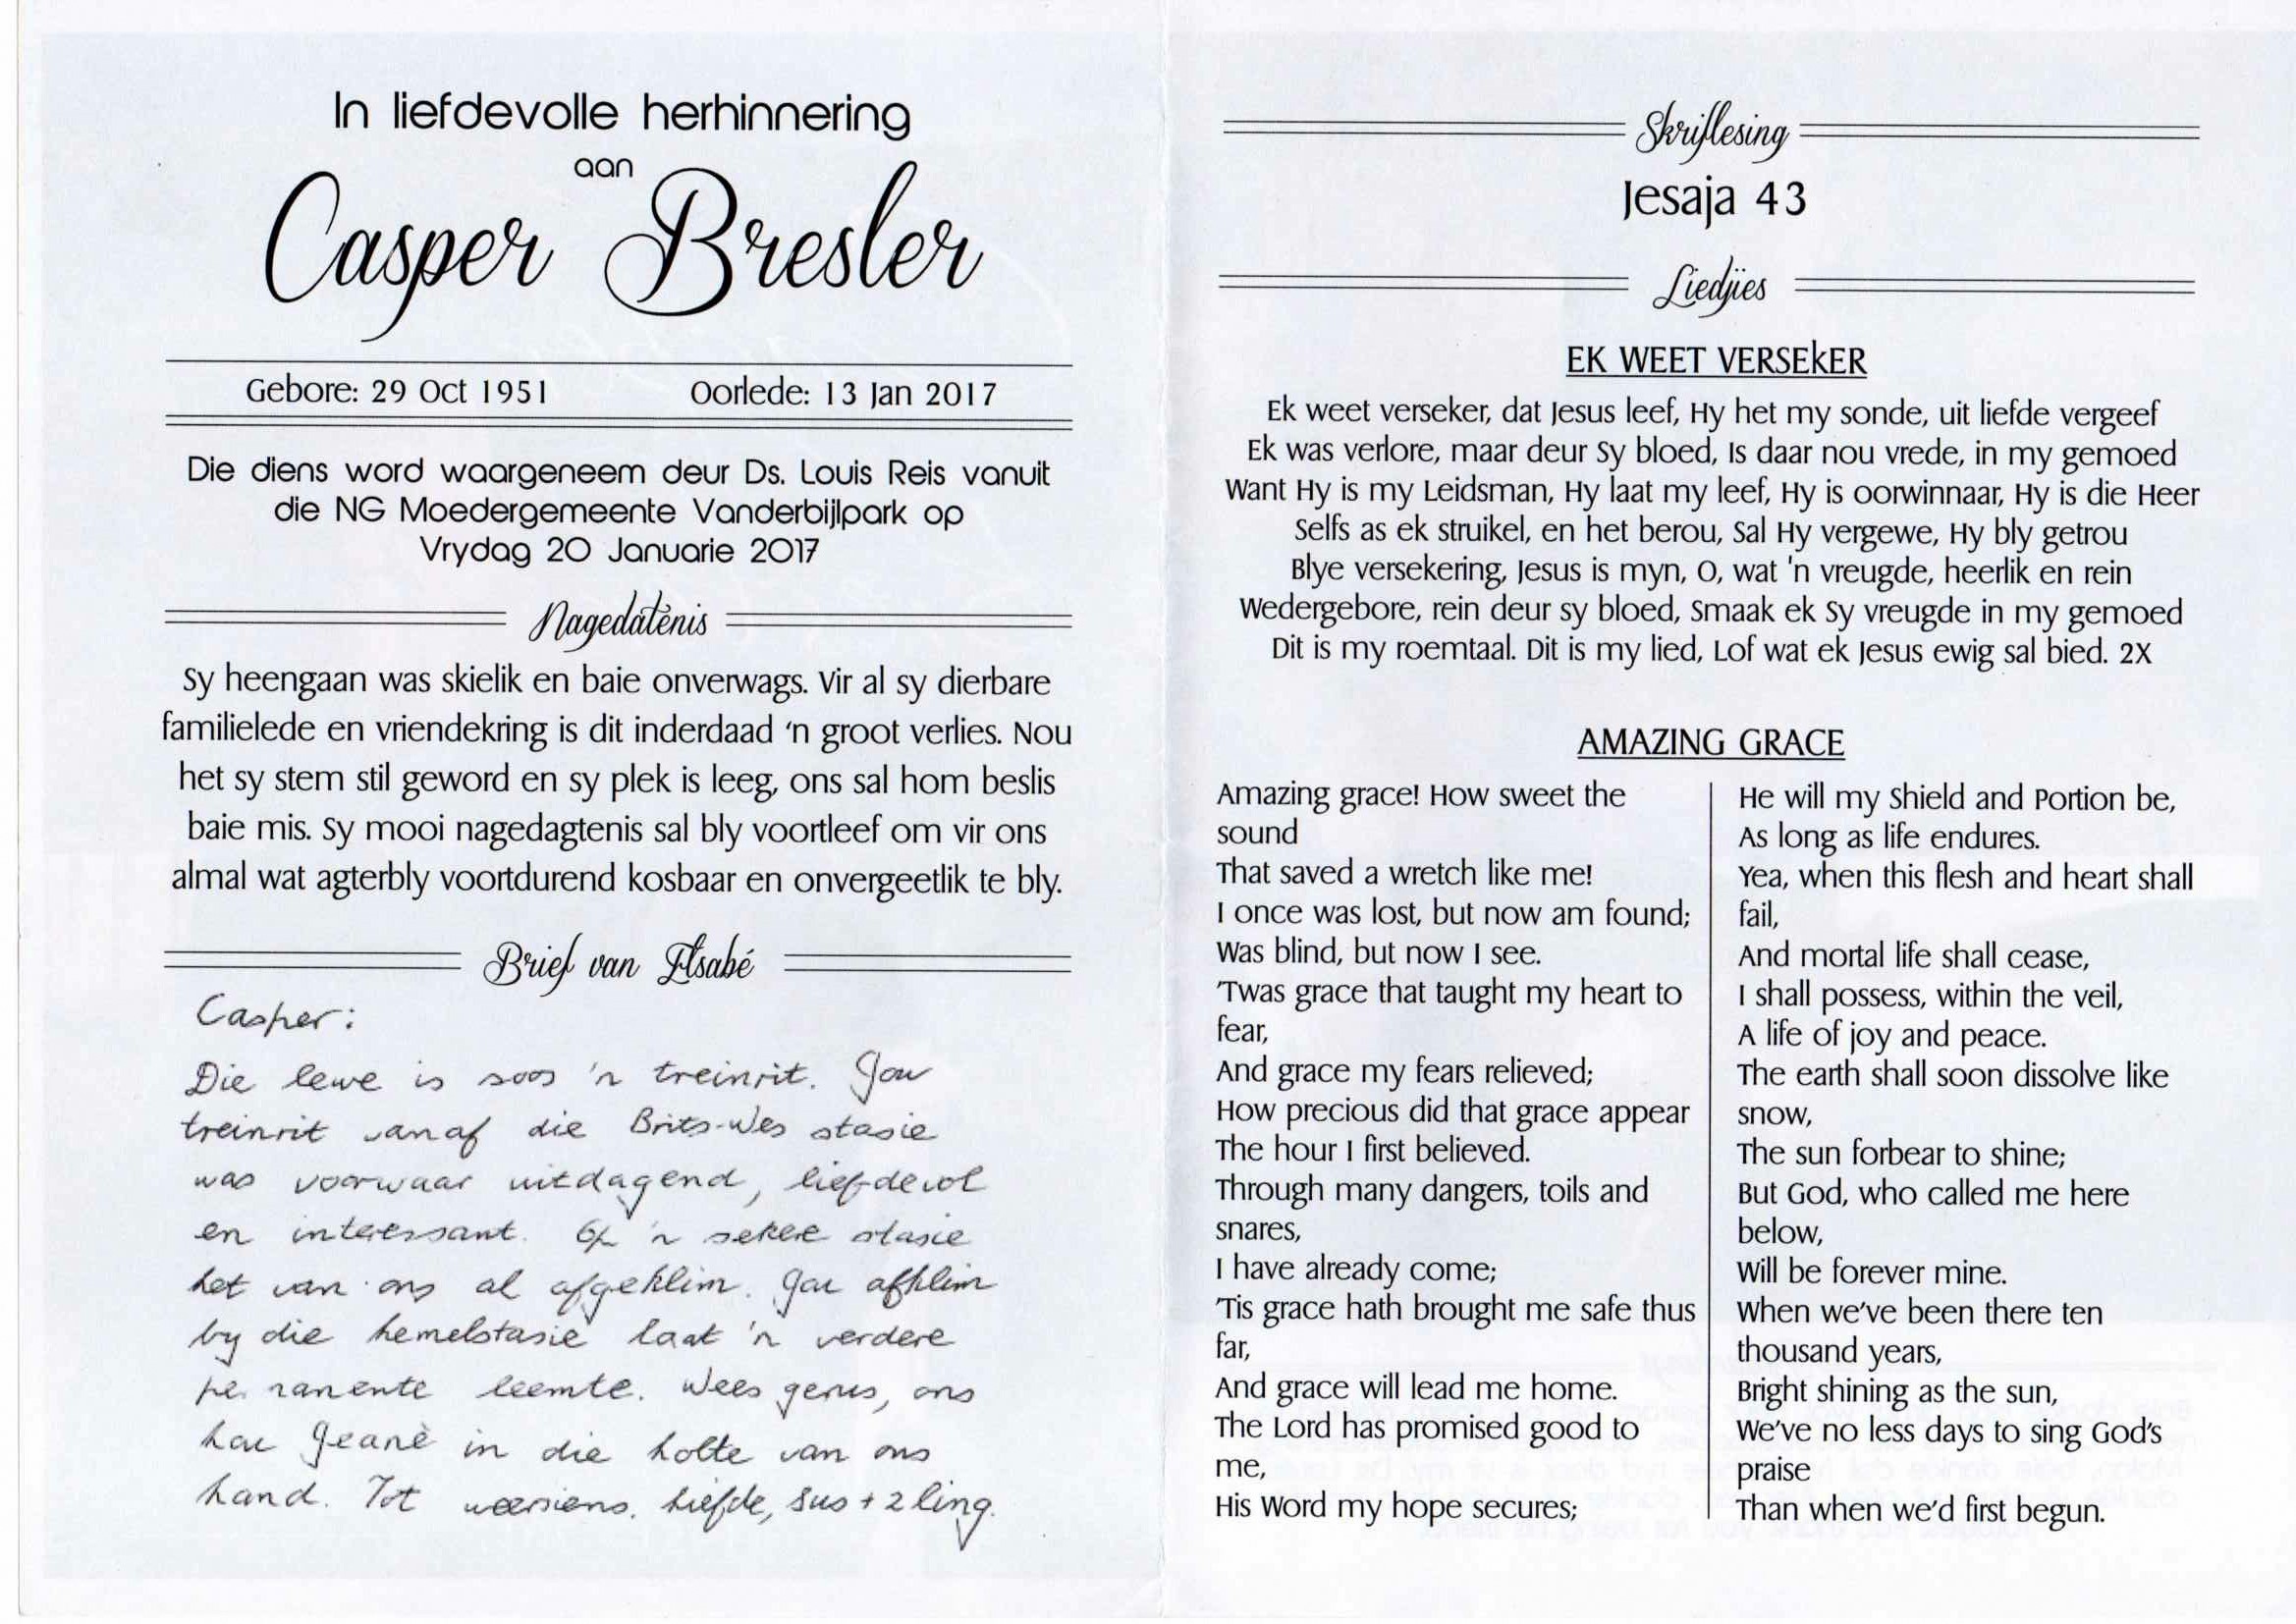 In liefdevolle herhinnering
aan
Casper Bresler
Gebore: 29 Oct 1951 Oorlede: 13 Jan 2017
Die diens word waargeneem deur Ds. Louis Reis vanuit
die NG Moedergemeente Vanderbijlpark op
Vrydag 20 Januarie 2017
Nagedatenis
Sy heengaan was skielik en baie onverwags. Vir al sy dierbare
familielede en vriendekring is dit inderdaad ‘n groot verlies. Nou
het sy stem stil geword en sy plek is leeg, ons sal hom beslis
baie mis. Sy mooi nagedagtenis sal bly voortleef om vir ons
almal wat agterbly voortdurend kosbaar en onvergeetlik te bly.
Brief van Elsabé
Casper:
Die lewe is soos 'n treinrit. Jou
treinrit vanaf die Brits-Wes stasie
was voorwaar uitdagend, liefdevol
en interessant. Op 'n sekere stasie
het van ons al afgeklim. Jou afklim
by die hemelstasie laat 'n verdere
permanente leemte. Wees gerus, ons
hou Jeanè in die holte van ons
hand. Tot weersiens. Liefde, Sus + 2ling.
Skriflesing
Jesaja 43
Liedjies
EK WEET VERSEkER
Ek weet verseker, dat Jesus leef, Hy het my sonde, uit liefde vergeef
Ek was verlore, maar deur Sy bloed, Is daar nou vrede, in my gemoed
Want Hy is my Leidsman, Hy laat my leef, Hy is oorwinnaar, Hy is die Heer
Selfs as ek struikel, en het berou, Sal Hy vergewe, Hy bly getrou
Blye versekering, Jesus is myn, O, wat 'n vreugde, heerlik en rein
Wedergebore, rein deur sy bloed, Smaak ek Sy vreugde in my gemoed
Dit is my roemtaal. Dit is my lied, Lof wat ek Jesus ewig sal bied. 2X
AMAZING GRACE
Amazing grace! How sweet the
sound
That saved a wretch like me!
I once was lost, but now am found;
Was blind, but now I see.
'Twas grace that taught my heart to
fear,
And grace my fears relieved;
How precious did that grace appear
The hour I first believed.
Through many dangers, toils and
snares,
I have already come;
'Tis grace hath brought me safe thus
far,
And grace will lead me home.
The Lord has promised good to
me,
His Word my hope secures;
He will my Shield and Portion be,
As long as life endures.
Yea, when this flesh and heart shall
fail,
And mortal life shall cease,
I shall possess, within the veil,
A life of joy and peace.
The earth shall soon dissolve like
snow,
The sun forbear to shine;
But God, who called me here
below,
Will be forever mine.
When we’ve been there ten
thousand years,
Bright shining as the sun,
We’ve no less days to sing God’s
praise
Than when we’d first begun.